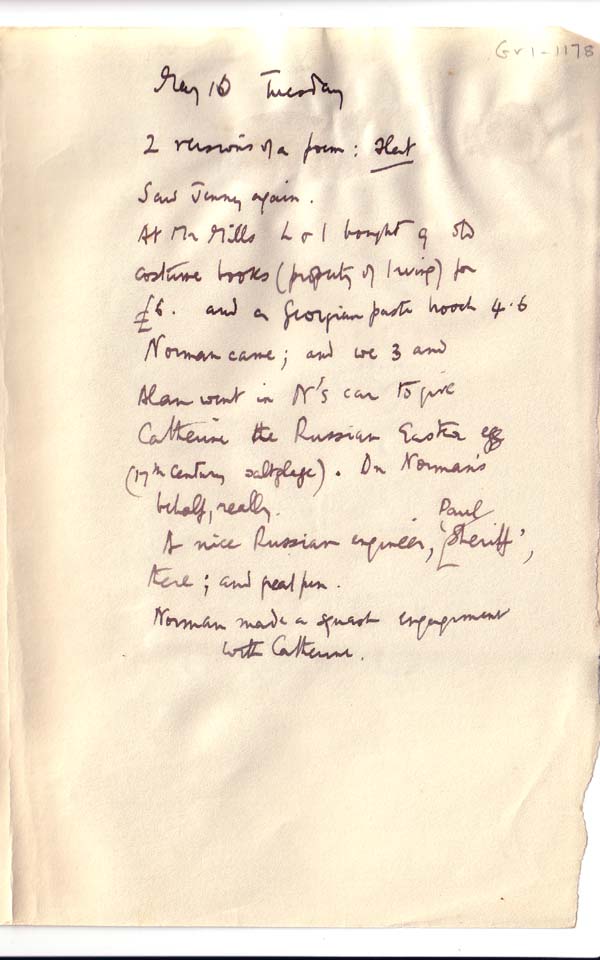 Gr1-1178
May 16 Tuesday
2 versions of a poem:
Saw Jenny again.
At Mr Mills L & I bought 9 old
costume books (property of Irving) for
£6. and a Georgian paste brooch 4.6
Norman came; and we 3 and
Alan went in N's car to give
Catherine the Russian Easter egg
(17th century saltglaze). On Norman's
behalf, really.
A nice Russian engineer, Paul 'Sheriff',
there; and great fun.
Norman made a squash engagement
with Catherine.